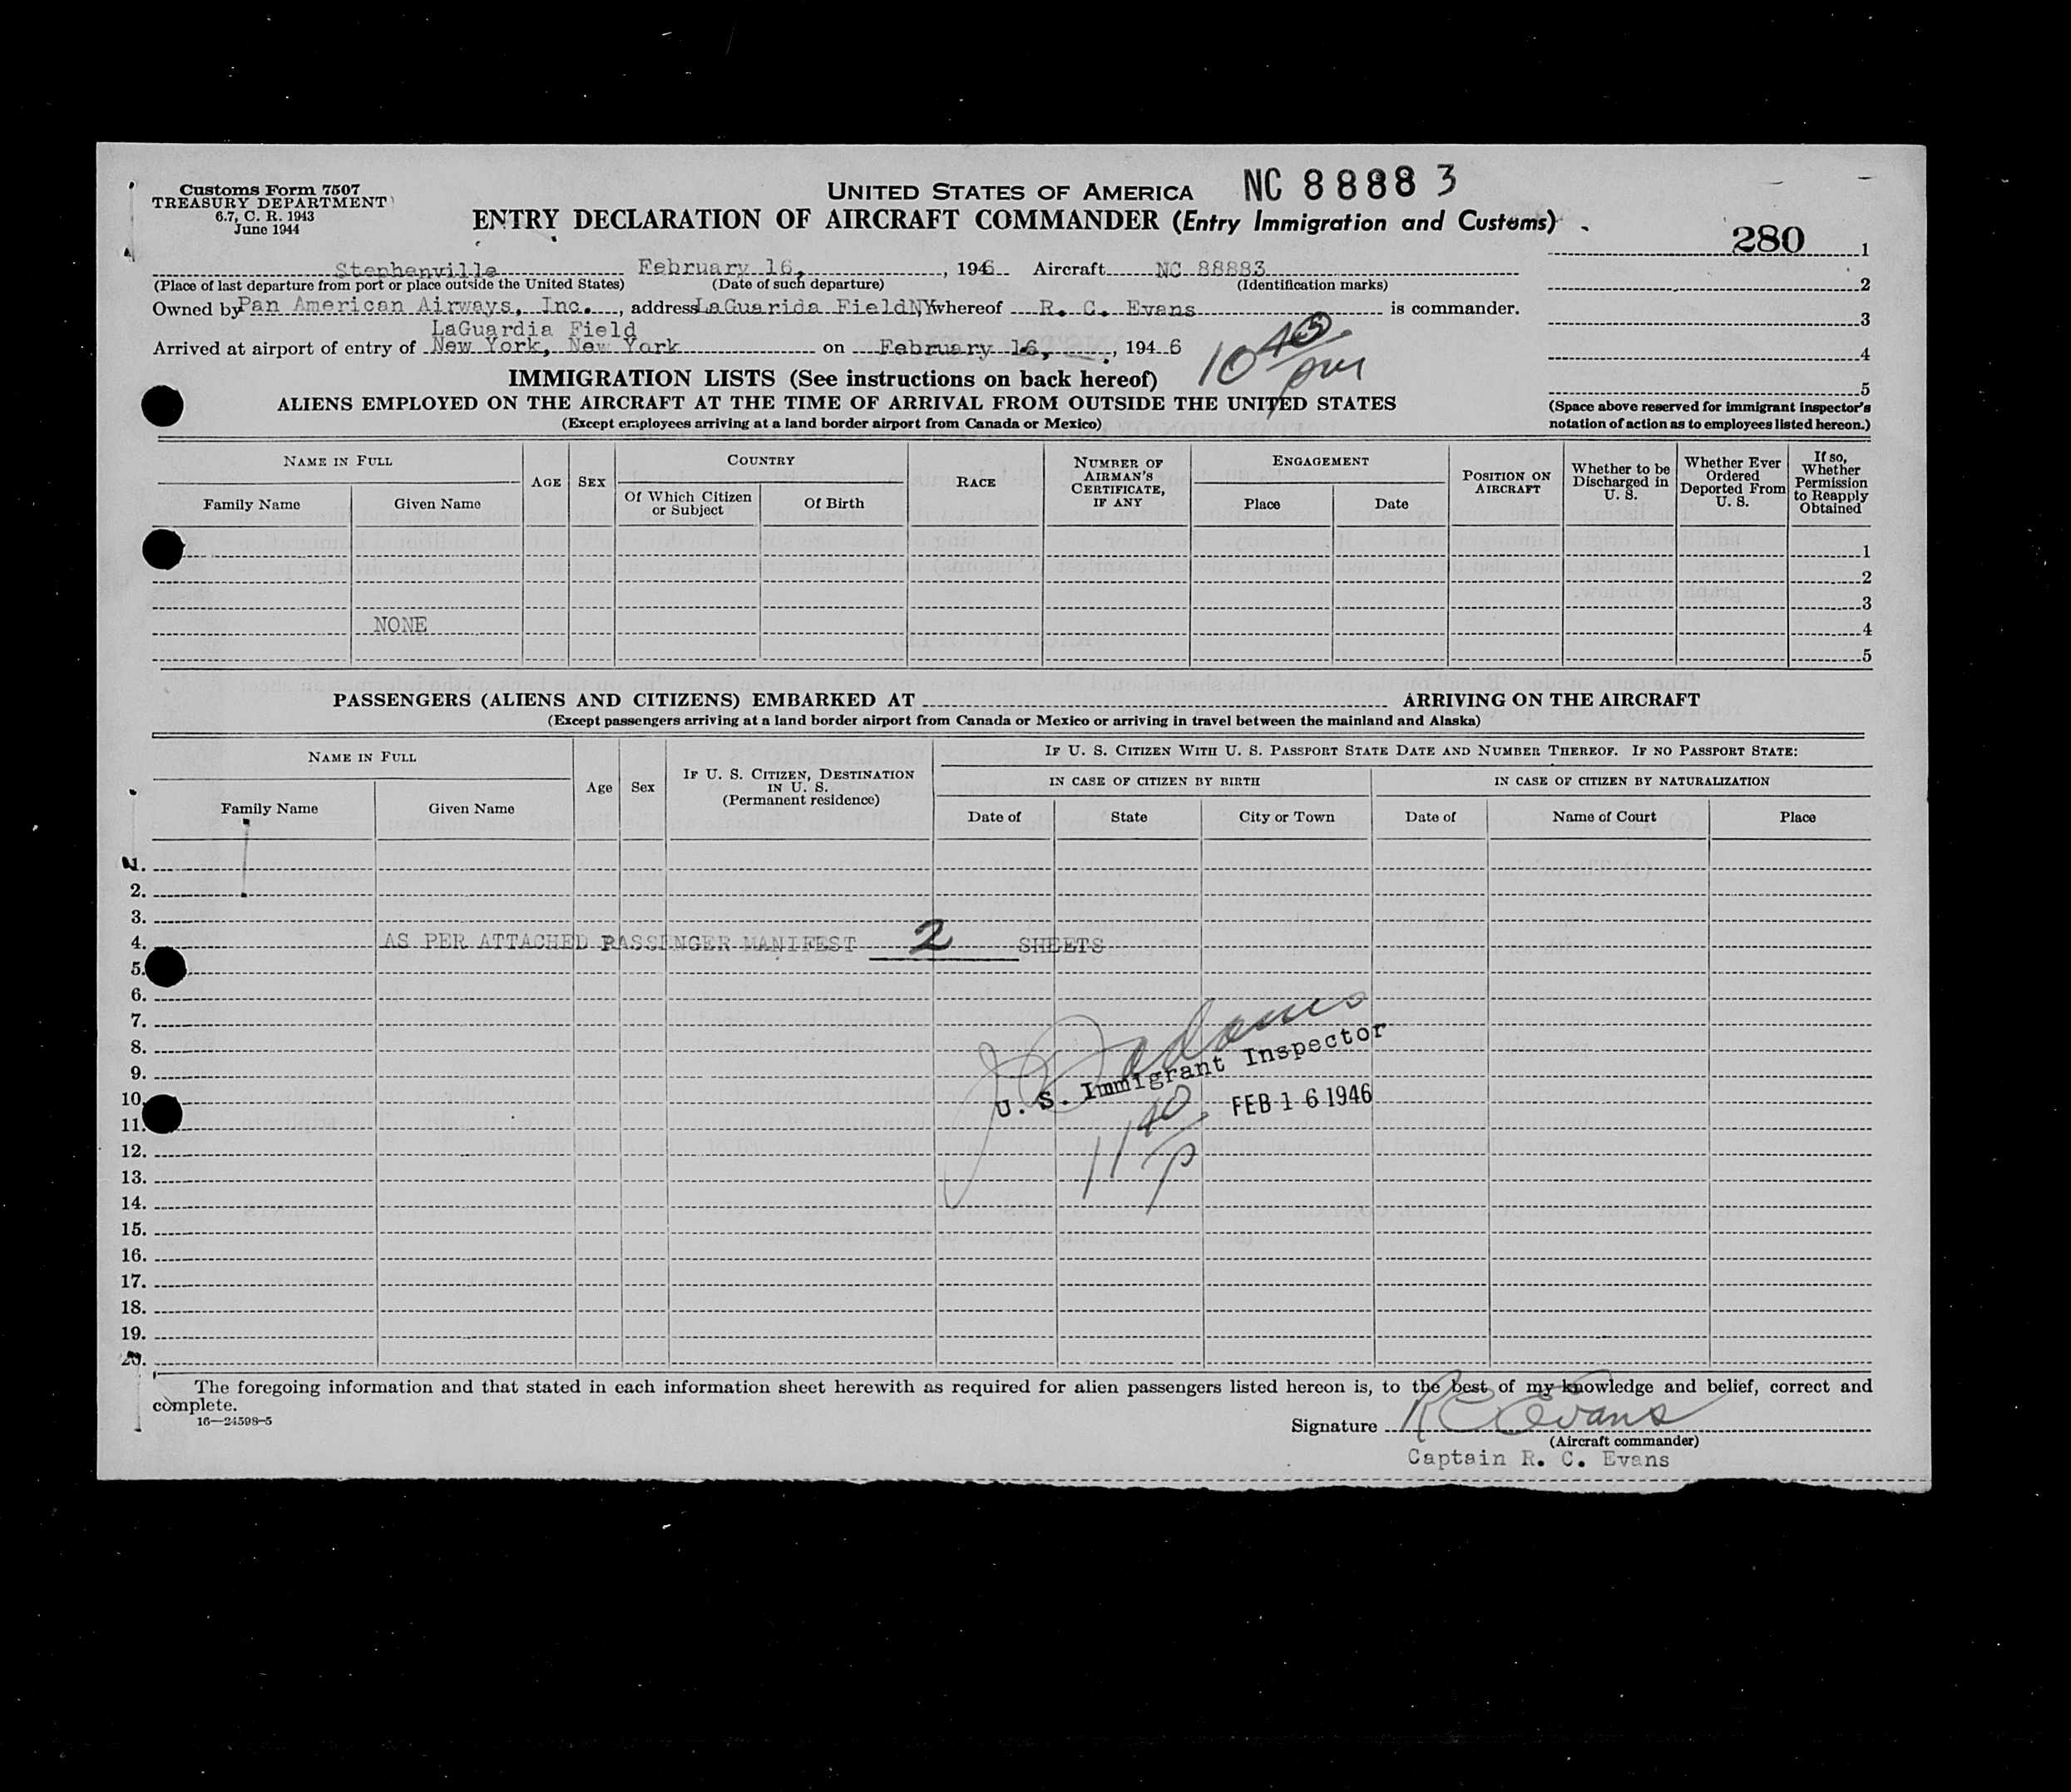 Customs Form 7507
TREASURY DEPARTMENT
6.7, C. R. 1943
June 1944
UNITED STATES OF AMERICA NC 88883
ENTRY DECLARATION OF AIRCRAFT COMMANDER (Entry Immigration and Customs)
280 1
2
3
4
5
(Space above reserved for immigrant inspector's
notation of action as to employees listed hereon.)
Stephenville February 16, , 1946 Aircraft NC 88883
(Place of last departure from port or place outside the United States) (Date of such departure) (Identification marks)
Owned by Pan American Airways, Inc. , address LaGuarida Field NY whereof R. C. Evans is commander.
LaGuardia Field
Arrived at airport of entry of New York, New York on February 16, , 1946
10 pm
IMMIGRATION LISTS (See instructions on back hereof)
ALIENS EMPLOYED ON THE AIRCRAFT AT THE TIME OF ARRIVAL FROM OUTSIDE THE UNITED STATES
(Except employees arriving at a land border airport from Canada or Mexico)
NAME IN FULL
Family Name Given Name
AGE
SEX
COUNTRY
Of Which Citizen
or Subject
Of Birth
RACE
NUMBER OF
AIRMAN'S
CERTIFICATE,
IF ANY
ENGAGEMENT
Place Date
POSITION ON
AIRCRAFT
Whether to be
Discharged in
U. S.
Whether Ever
Ordered
Deported From
U. S.
If so,
Whether
Permission
to Reapply
Obtained
1
2
3
NONE 4
5
PASSENGERS (ALIENS AND CITIZENS) EMBARKED AT ARRIVING ON THE AIRCRAFT
(Except passengers arriving at a land border airport from Canada or Mexico or arriving in travel between the mainland and Alaska)
NAME IN FULL
Family Name Given Name
Age
Sex
IF U. S. CITIZEN, DESTINATION
IN U. S.
(Permanent residence)
IF U. S. CITIZEN WITH U. S. PASSPORT STATE DATE AND NUMBER THEREOF. IF NO PASSPORT STATE:
IN CASE OF CITIZEN BY BIRTH IN CASE OF CITIZEN BY NATURALIZATION
Date of State City or Town Date of Name of Court Place
1.
2.
3.
4. AS PER ATTACHED PASSENGER MANIFEST 2 SHEETS
5.
6.
7.
8. Adams
9. U. S. Immigrant Inspector
10. FEB 16 1946
11. 11 40 P
12.
13.
14.
15.
16.
17.
18.
19.
20.
The foregoing information and that stated in each information sheet herewith as required for alien passengers listed hereon is, to the best of my knowledge and belief, correct and
complete.
16—24598-5
Signature R C Evans
(Aircraft commander)
Captain R. C. Evans